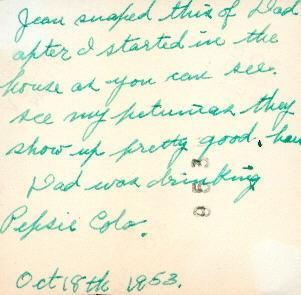 Jean snaped this of Dad
after I started in the
house as you can see.
see my petunias they
show up pretty good.
Dad was drinking
Pepsie Cola.
Oct 18th 1953.